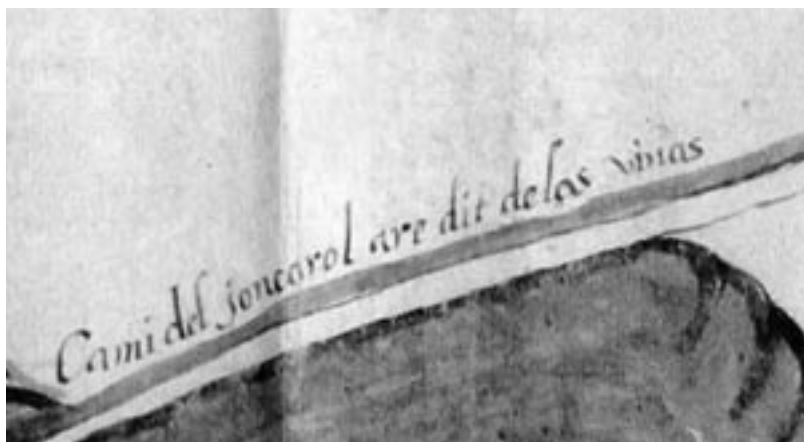 Cami del joncarol are dit de las vinas